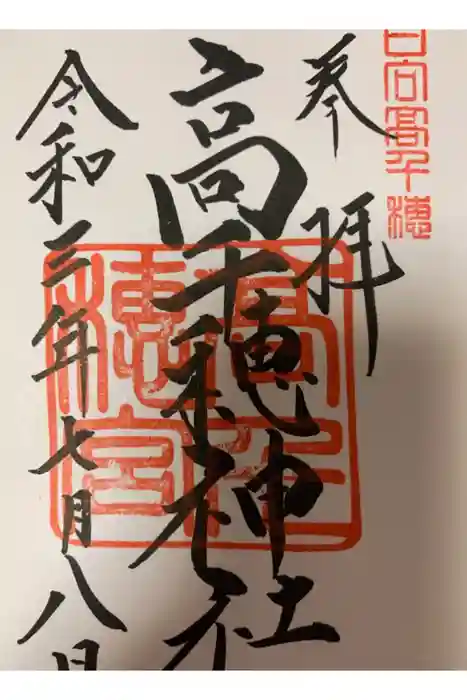 日向高千穂
奉拝
高千穂神社
高千穂宮
令和三年七月八日